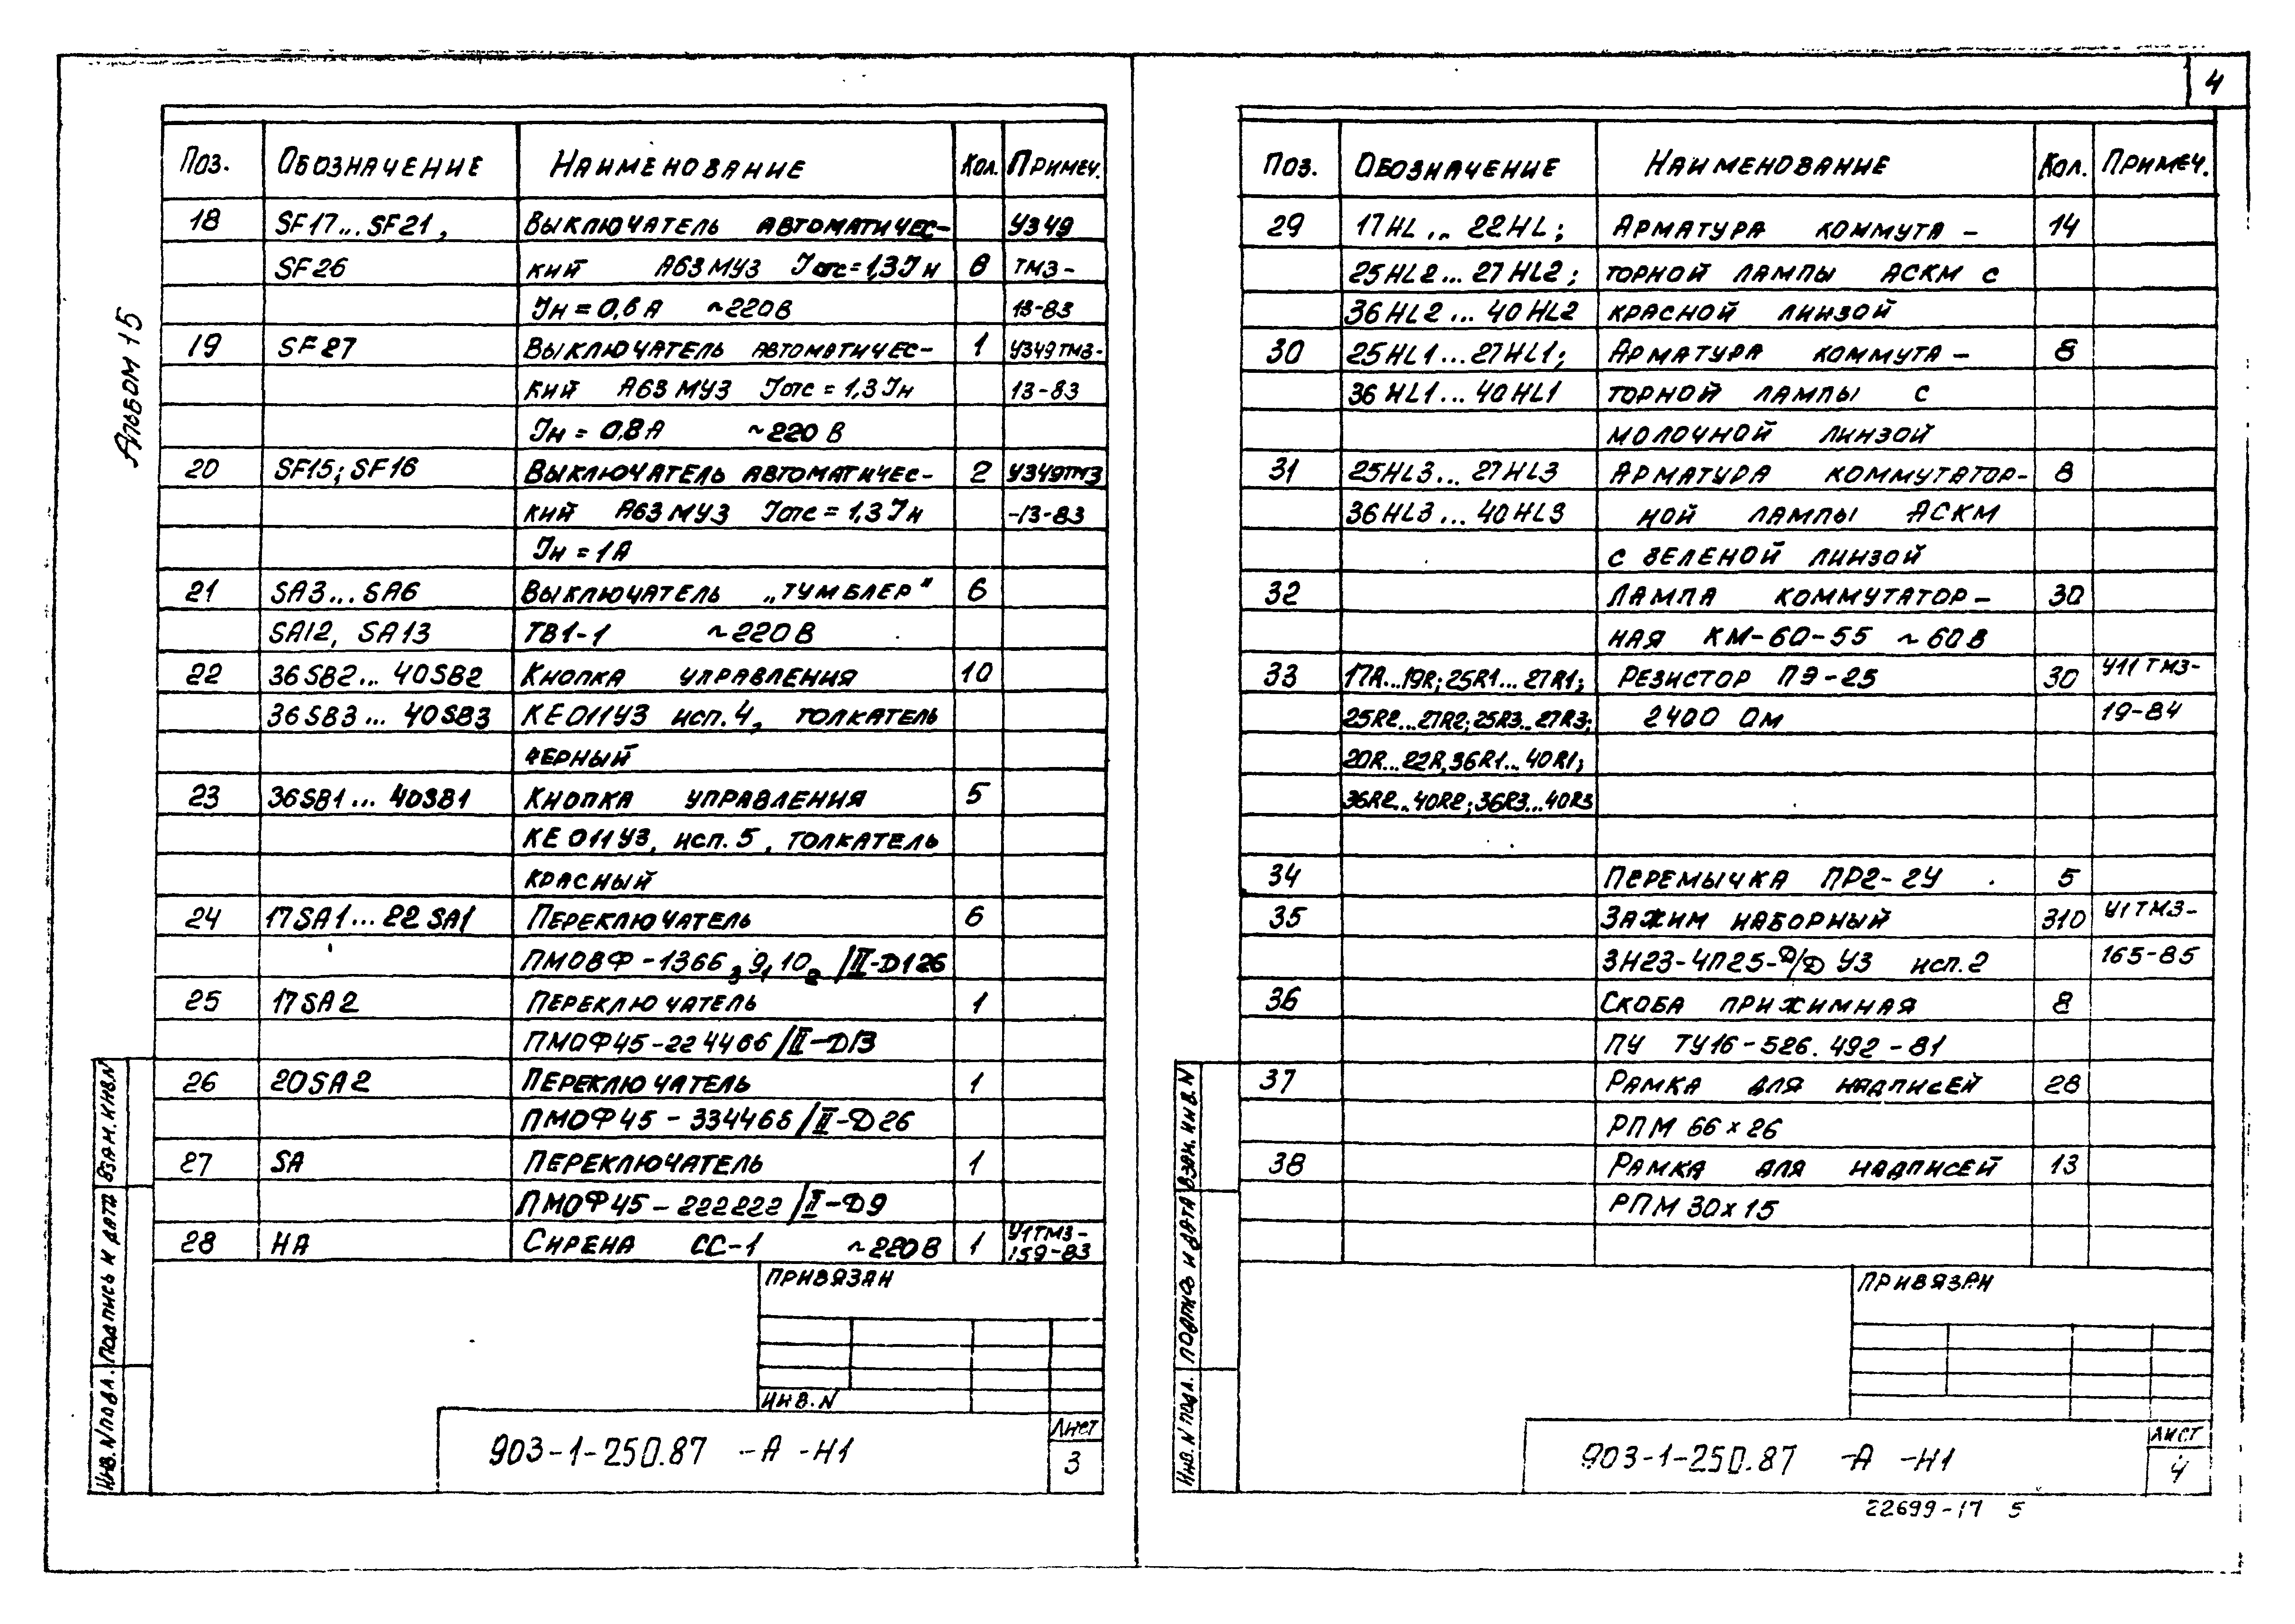 4
Альбом 15
Поз. Обозначение Наименование Кол. Примеч.
18 SF17...SF21, Выключатель автоматичес- У349
SF26 кий А63МУЗ Jотс=1,3Jн 6 ТМЗ-
Jн=0,6А ~220В 13-83
19 SF27 Выключатель автоматичес- 1 У349ТМЗ-
кий А63МУЗ Jотс=1,3Jн 13-83
Jн=0,8А ~220В
20 SF15; SF16 Выключатель автоматичес- 2 У349ТМЗ
кий А63МУЗ Jотс=1,3Jн -13-83
Jн=1А
21 SA3...SA6 Выключатель „тумблер" 6
SA12, SA13 ТВ1-1 ~220В
22 36SB2...40SB2 Кнопка управления 10
36SB3...40SB3 КЕ011УЗ исп.4, толкатель
черный
23 36SB1...40SB1 Кнопка управления 5
КЕ011УЗ, исп.5, толкатель
красный
24 17SA1...22SA1 Переключатель 6
ПМОВФ-1366з 9,10 /II-Д126
25 17SA2 Переключатель 1
ПМОФ45-224466/II-Д13
26 20SA2 Переключатель 1
ПМОФ45-334466/II-Д26
27 SA Переключатель 1
ПМОФ45-222222/II-Д9
28 HA Сирена СС-1 ~220В 1 У1ТМЗ-
159-83
Привязан
Инв.N
903-1-250.87 -А -Н1
Лист
3
Инв.N подл. Подпись и дата Взам.инв.N
Поз. Обозначение Наименование Кол. Примеч.
29 17HL...22HL; Арматура коммута- 14
25HL2...27HL2; торной лампы АСКМ с
36HL2...40HL2 красной линзой
30 25HL1...27HL1; Арматура коммута- 8
36HL1...40HL1 торной лампы с
молочной линзой
31 25HL3...27HL3 Арматура коммутатор- 8
36HL3...40HL3 ной лампы АСКМ
с зеленой линзой
32 Лампа коммутатор- 30
ная КМ-60-55 ~60В
33 17R...19R; 25R1...27R1; Резистор ПЭ-25 30 У11ТМЗ-
25R2...27R2; 25R3...27R3; 2400 Ом 19-84
20R...22R, 36R1...40R1;
36R2...40R2; 36R3...40R3
34 Перемычка ПР2-2У 5
35 Зажим наборный 310 У1ТМЗ-
ЗН23-4П25-Д/Д УЗ исп.2 165-85
36 Скоба прижимная 8
ПУ ТУ16-526.492-81
37 Рамка для надписей 28
РПМ 66×26
38 Рамка для надписей 13
РПМ 30×15
Привязан
903-1-250.87 -А -Н1
Лист
4
Инв.N подл. Подпись и дата Взам.инв.N
22699-17 5